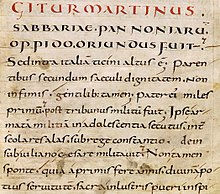 GITUR MARTINUS
SABBARIAE. PANNONIARU
OPPIDO. ORIUNDUS FUIT.
Sed intra italiã ticini altus ẽ. Paren
tibus secundum saeculi dignitatem. Non
infimis, gentilibus tamen; Pater ei miles
primũ. post tribunus militũ fuit; Ipse ar
matã militiã in adolescentia secutus, int̃
scolares alas, sub rege constantio. dein
sub iuliano cęsare militavit; Non tamen
sponte, quia a primis ferẽ annis, divinã po
tius servitutẽ. sacra inlustris pueri inspi